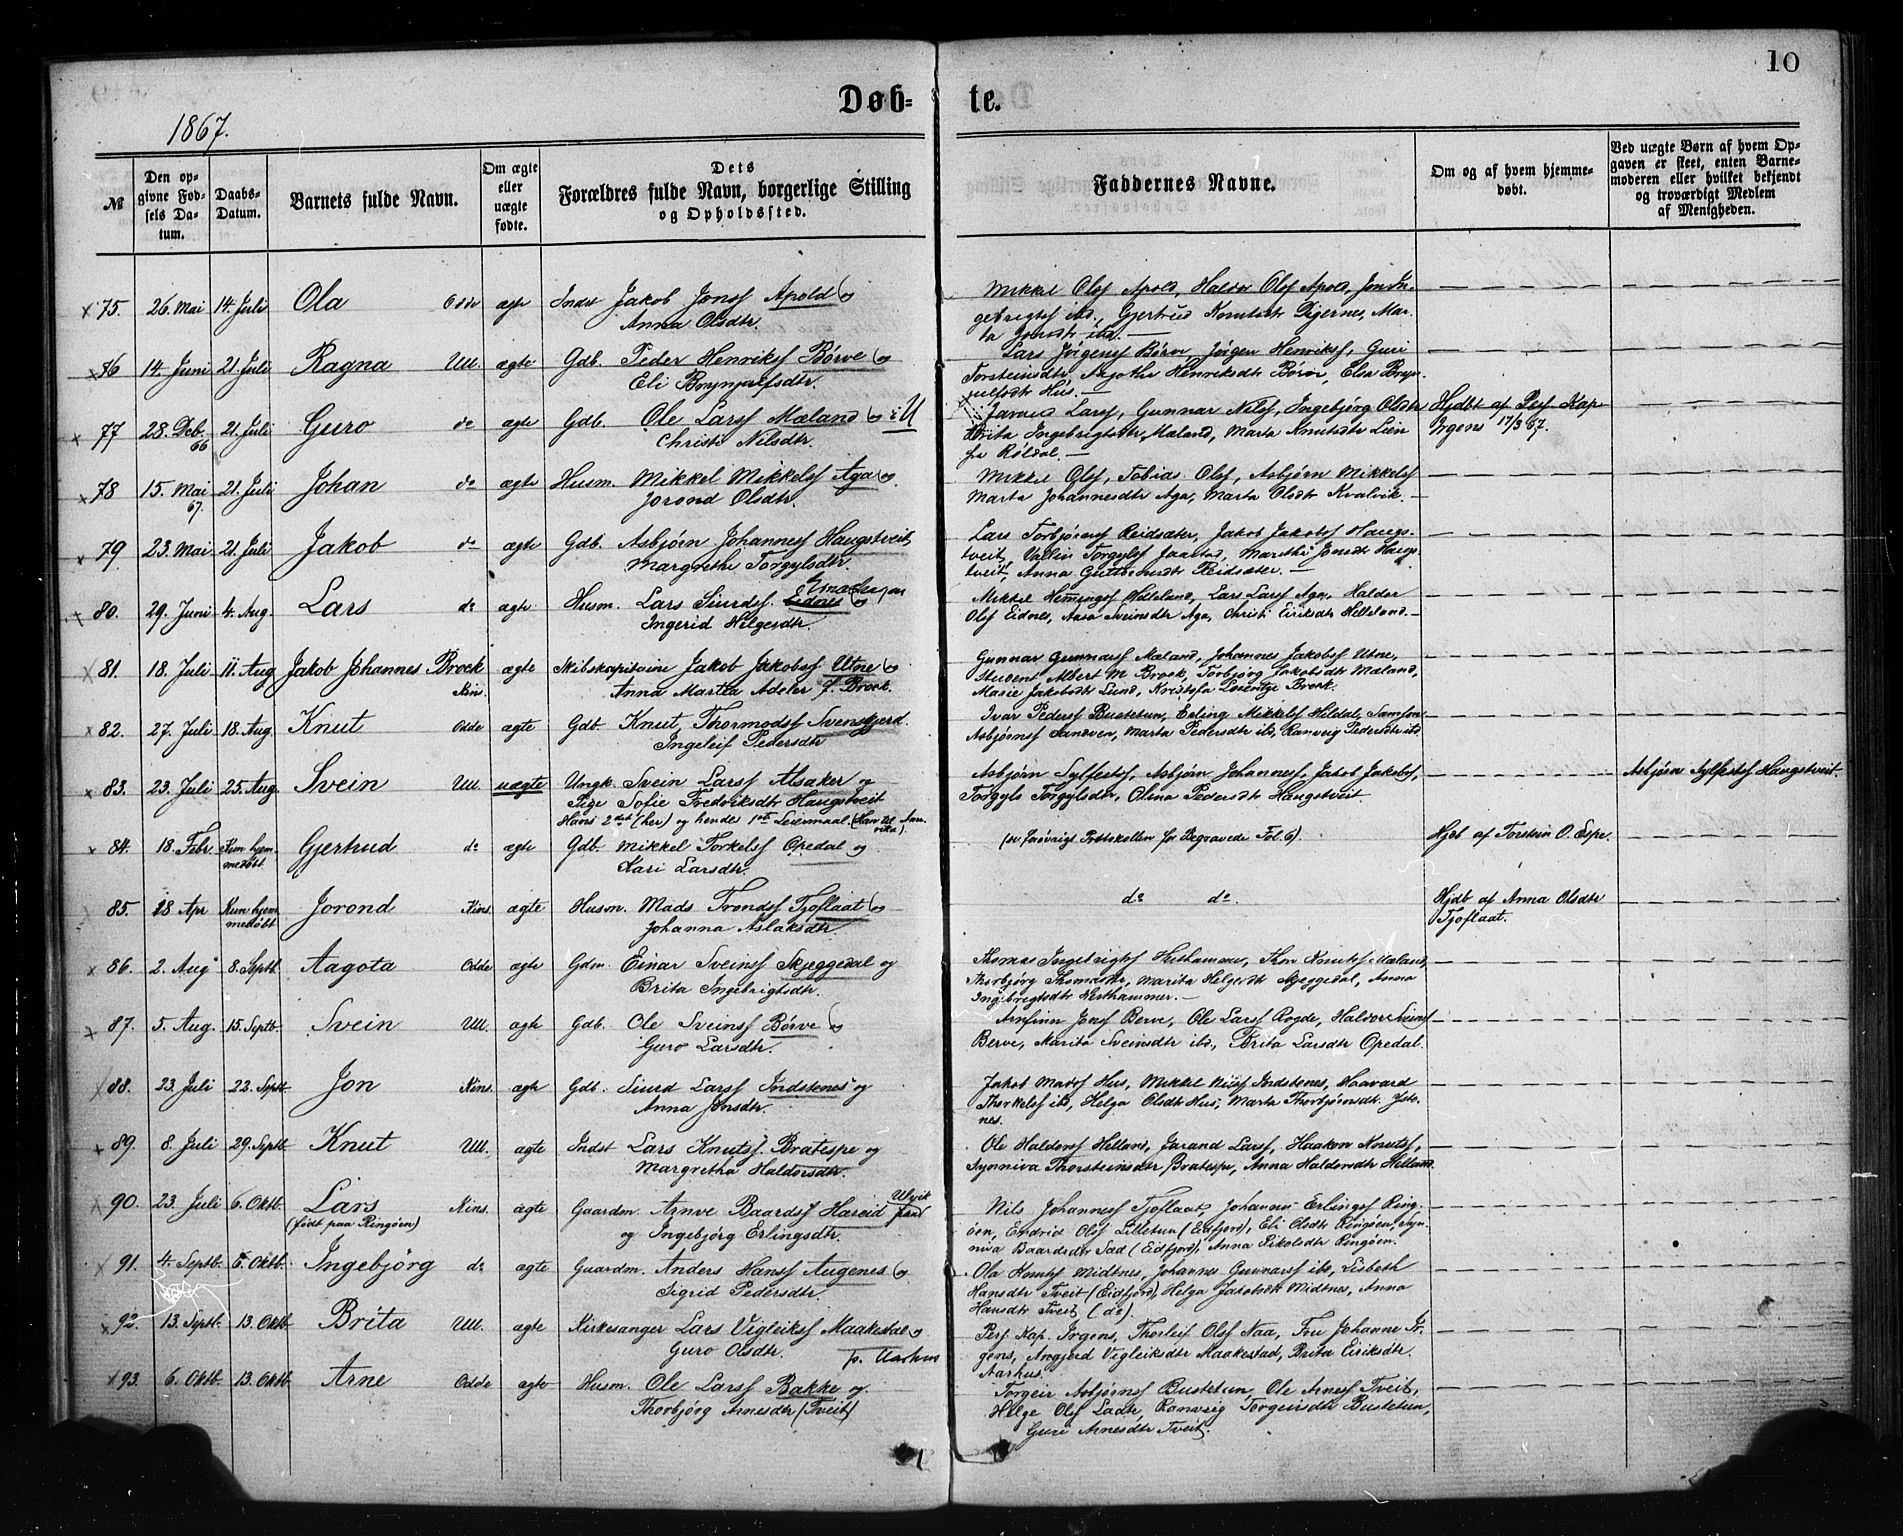 10
Døb-te.
1867.
№
Den opgivne Fødsels Datum.
Daabs-Datum.
Barnets fulde Navn.
Om ægte eller uægte fødte.
Dets Forældres fulde Navn, borgerlige Stilling og Opholdssted.
Faddernes Navne.
Om og af hvem hjemmedøbt.
Ved uægte Børn af hvem Opgaven er skeet, enten Barnemoderen eller hvilket bekjendt og troværdigt Medlem af Menigheden.
75. 26. Mai 14. Juli Ola Odde ægte Indst Jakob Jonss Apold og
Anna Olsdtr.
Mikkel Olss Apold, Haldor Olss Apold, Jon In-
gebrigtss ibd., Gjertrud Knutsdtr Digernes, Mar-
ta Jonsdtr ibd.
76 14. Juni 21. Juli Ragna Ull. ægte Gdb. Peder Henrikss Børve og
Eli Brynjulfsdtr.
Lars Jørgenss Børve, Jørgen Henrikss, Guri
Torsteinsdtr, Aagotha Henriksdtr Børve, Elsa Bryn-
julfsdtr Hus.
77 28. Deb. 66 21. Juli Guro do ægte Gdb. Ole Larss Mæland og i U
Christi Nilsdtr.
Larss, Gunnar Nilss, Ingebjørg Olsdtr
Brita Ingebrigtsdtr Mæland, Marta Knutsdtr Lien
fra Røldal.
Hjdbt af Pers Kap
Irgens 17/3 67.
78 15. Mai 67. 21. Juli Johan do ægte Husm. Mikkel Mikkelss Aga og
Jorond Olsdtr.
Mikkel Olss, Tobias Olss, Asbjørn Mikkelss
Marta Johannesdtr Aga, Marta Olsdtr Kvalvik.
79. 23. Mai 21. Juli Jakob do ægte Gdb. Asbjørn Johanness Haugstveit
Margrethe Torgylsdtr.
Lars Torbjørnss Reisæter, Jakob Jakobss Haugs-
tveit, Torgylss Jaastad, Marithe Jonsdtr Haugs-
tveit, Anna Guttormsdtr Reisæter.
80. 29. Juni 4. Aug. Lars do ægte Husm. Lars Siurdss. Eidnes og
Ingerid Helgesdtr.
Mikkel Hemmingss Helleland, Lars Larss Aga, Haldor
Olss Eidnes, Aasa Sveinsdtr Aga, Christi Eiriksdtr Helleland
81. 18. Juli 11. Aug Jakob Johannes Brock Kins. ægte Skibskapitaine Jakob Jakobss Utne og
Anna Martha Adeler f. Brock.
Gunnar Gunnarss Mæland, Johannes Jakobss Utne,
Student Albert M Brock, Torbjørg Jakobsdtr Mæland,
Marie Jakobsdtr Lund, Kristofa Lorentze Brock.
82. 27. Juli 18. Aug. Knut Odde ægte Gdb Knut Thormodss Svenskjerd.
Ingeleif Pedersdtr
Ivar Pederss Bustetun, Erling Mikkelss Hildal, Samson
Asbjørnss Sandven, Marta Pedersdtr ibd, Ranveig Pedersdtr ibd
83. 23. Juli 25. Aug. Svein Ull. uægte Ungk Svein Larss Alsaker og
Pige Sofie Fredriksdtr Haugstveit
Hans 2det (her) og hendes 1ste Leiermaal
Asbjørn Sylfestss, Asbjørn Johanness, Jakob Jakobss,
Torgyls Torgylsdtr, Olina Pedersdtr Haugstveit.
Asbjørn Sylfestss Haugstveit.
84. 18. Febr. Kun hjem-medøbt Gjertrud do ægte Gdb Mikkel Torkelss Opedal og
Kari Larsdtr.
(se forøvrigt Protokollen for Begravede Fol. 6).
Hjdb af Torstein O. Espe.
85. 18 Apr Kun hjem-medøbt Jorond Kins. ægte Husm. Mads Trondss Tjoflaat og
Johanna Aslaksdtr.
do do.
Hjdb af Anna Olsdtr
Tjoflaat.
86. 2. Aug 8. Septb. Aagota Odde ægte Gdm. Einar Sveinss Skjeggedal og
Brita Ingebrigtsdtr.
Thomas Ingebrigtss Hesthammer, Thor Knutss Mæland,
Thorbjørg Thomasdtr, Marita Helgesdtr Skjeggedal, Anna
Ingebrigtsdtr Hesthammer.
87. 5. Aug. 15. Septb. Svein Ull. ægte Gdb. Ole Sveinss Børve og
Guro Larsdtr.
Arnfinn Jonss Berve, Ole Larss Rogde, Haldor Sveinss
Berve, Marita Sveinsdtr ibd., Brita Larsdtr Opedal.
88. 23. Juli 22. Septb Jon Kins. ægte Gdb. Siurd Larss Indstenes og
Anna Jonsdtr.
Jakob Madss Hus, Mikkel Nilss Indstenes, Haavard
Thorkelss ibd, Helga Olsdtr Hus, Marta Thorbjørnsdtr. Iste-
nes.
89. 8. Juli 29. Septb. Knut Ull. ægte Indst Lars Knutss. Bratespe og
Margretha Haldorsdtr.
Ole Haldorss Helland, Jarand Larss, Haakon Knutss,
Synniva Thorsteinsdtr Bratespe, Anna Haldorsdtr Helland.
90. 23. Juli 6. Oktb. Lars Kins. ægte Gaardm. Arnve Baardss Hareid Ulvik
(født paa Ringøen)
og Ingebjørg Erlingsdtr.
Nils Johanness Tjoflaat, Johannes Erlingss Ring-
øen, Endrid Olss Lilletun (Eidfjord), Eli Olsdtr Ringøen, Syn-
niva Baardsdtr Sæd (Eidfjord), Anna Nikolsdtr Ringøen.
91. 4. Septb. 6. Oktb. Ingebjörg do ægte Gaardm. Anders Hanss Augenes og
Sigrid Pedersdtr.
Ola Knutss Midtnes, Johannes Gunnarss ibd, Lisbeth
Hansdtr Tveit (Eidfjord), Helga Jakobsdtr Midtnes, Anna
Hansdtr Tveit (do).
92. 13. Septb. 13. Oktb. Brita Ull. ægte Kirkesanger Lars Vigleikss Maakestad og
Guro Olsdtr. p. Aarhus
Pers Kap. Irgens, Thorleif Olss Naa, Fru Johanne Ir-
gens, Angjerd Vigleiksdtr Maakestad, Brita Eiriksdtr.
Aarhus.
93. 6. Oktb. 13. Oktb. Arne Odde ægte Husm. Ole Larss Bakke og
Thorbjørg Arnesdtr (Tveit)
Torgeir Asbjørnss Bustetun, Ole Arness Tveit,
Helge Olss Ladte, Ranveig Torgeirsdtr Bustetun,
Guri Arnesdtr Tveit.